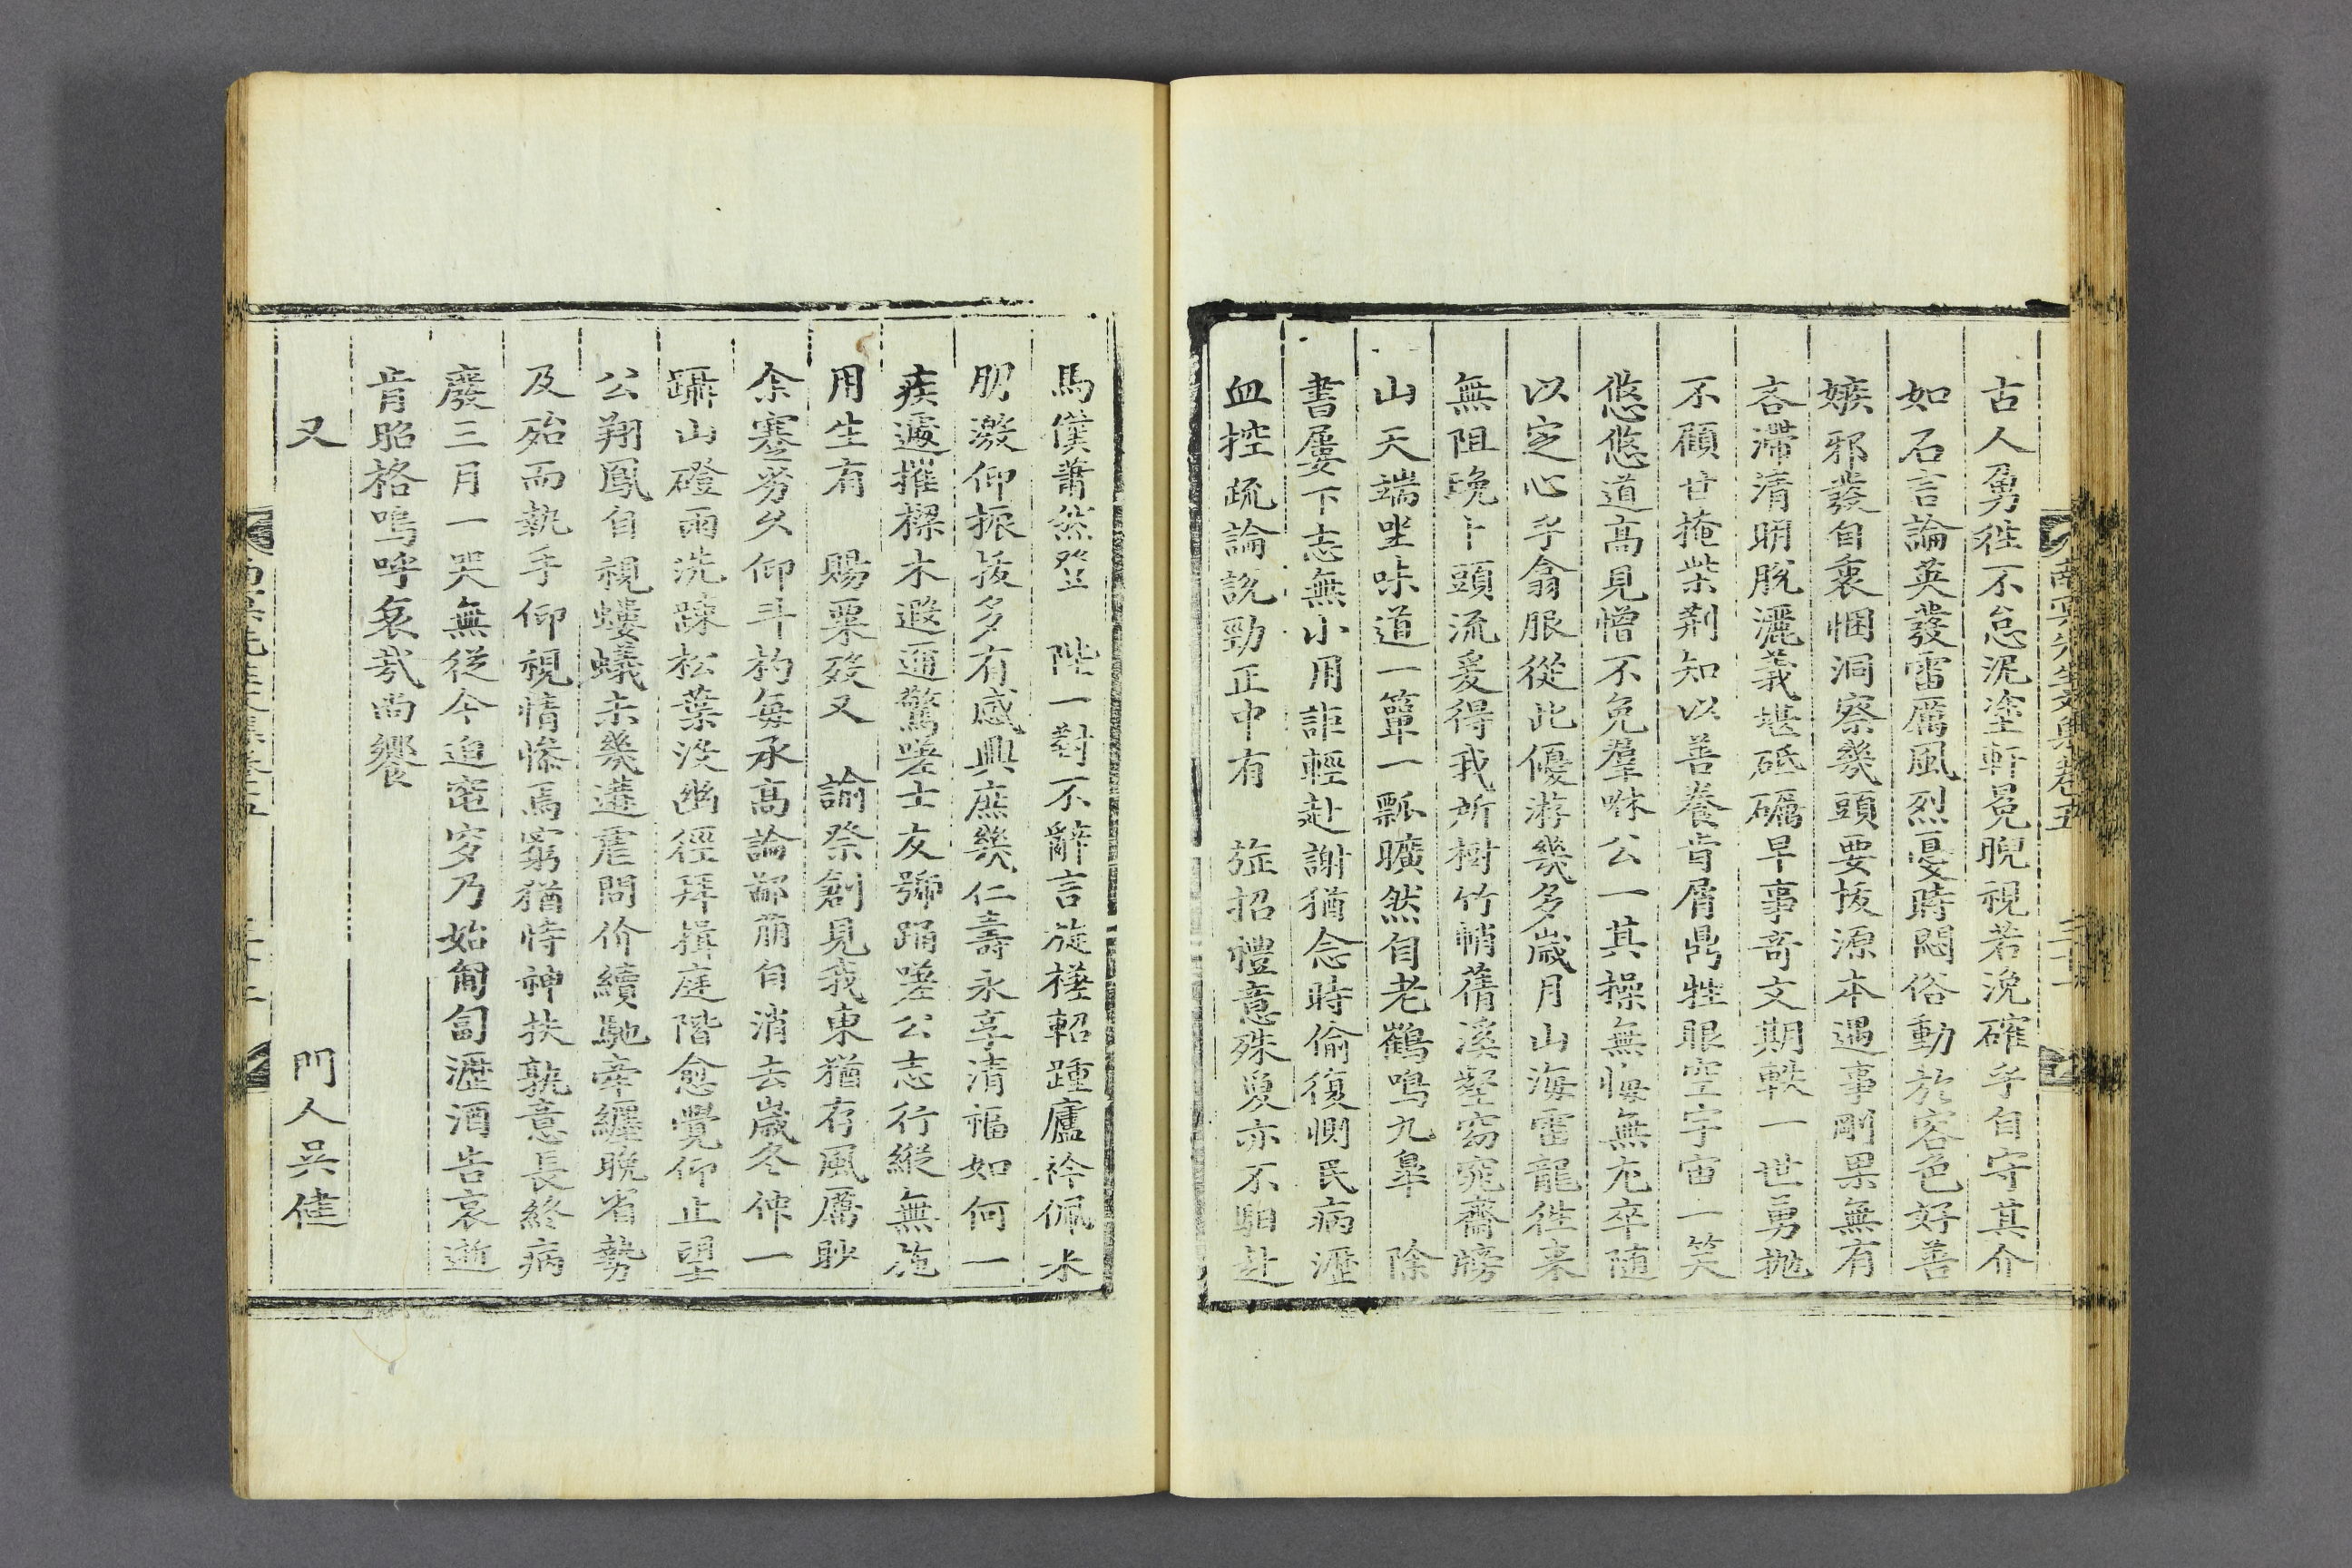 南冥先生文集卷五 二十一
古人勇徃不怠泥塗軒冕睨視若浼確乎自守其介
如石言論英發雷厲風烈憂時悶俗動於容色好善
嫉邪發自衷悃洞察幾頭要拔源本遇事剛果無有
吝滯清明脫灑義堪砥礪早事奇文期軼一世勇抛
不顧甘掩柴荆知以善養肯屑鼎牲眼空宇宙一笑
悠悠道高見憎不免羣咻公一其操無悔無尤卒随
以定心乎翕服從此優游幾多歲月山海雷龍徃来
無阻晩卜頭流爰得我所樹竹蕭蒨溪壑窈窕齋牓
山天端坐味道一簞一瓢曠然自老鶴鳴九皐 除
書屢下志無小用詎輕赴謝猶念時偷復惻民病瀝
血控疏論說勁正中有 旌招禮意殊夐亦不馹赴
馬僕蕭然登 陛一對不辭言旋槎軺踵廬衿佩来
朋激仰振拔多有感興庶幾仁壽永享清福如何一
疾遽摧樑木遐迩驚嗟士友號踊嗟公志行縱無施
用生有 賜粟歿又 諭祭創見我東猶存風厲眇
余蹇劣久仰斗杓每承高論鄙萠自消去歲冬仲一
躡山磴雨洗踈松葉没幽徑拜揖庭階愈覺仰止望
公翔鳳自視螻蟻未幾遘瘧問价續馳牽纒晩省勢
及殆而執手仰視情慘焉窮猶恃神扶孰意長終病
廢三月一哭無從今迫窀穸乃始匍匐瀝酒告哀逝
肯昭格嗚呼哀哉尚饗
又 門人吳健